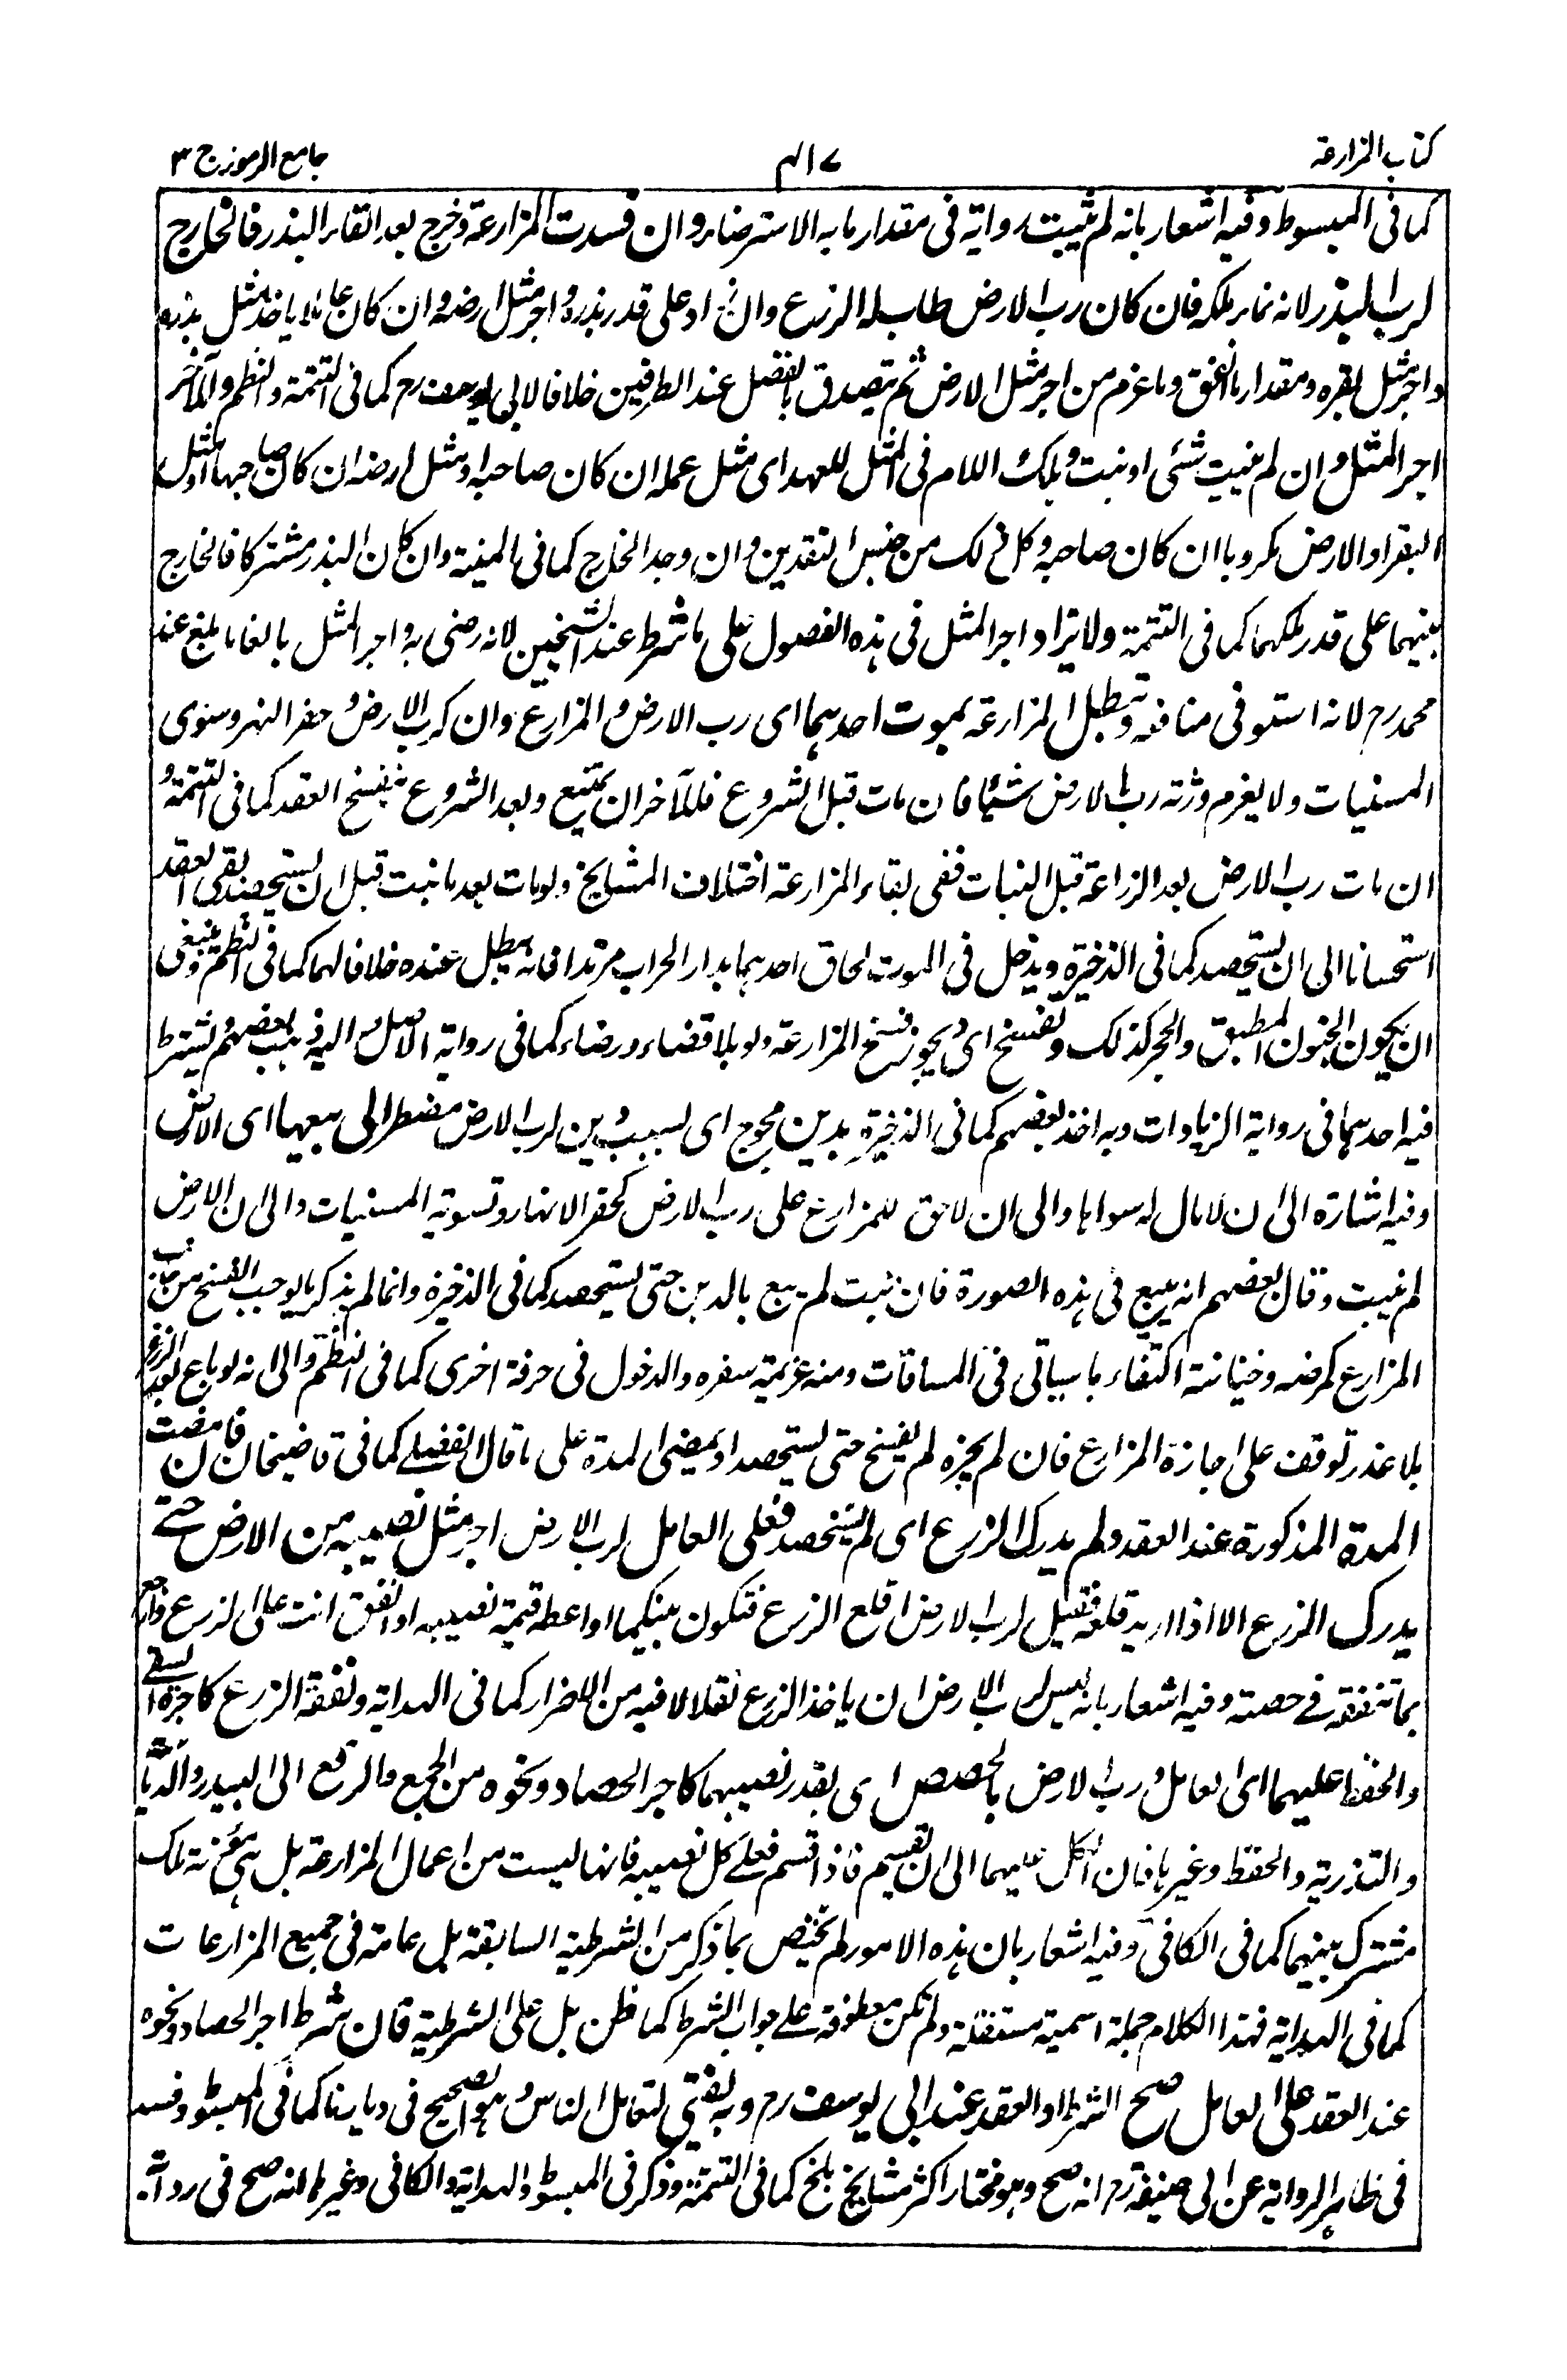 كتاب المزارعة
٤١٧
جامع الرموز ج ٣
كما فى المبسوط وفيه اشعار بانه لم يثبت رواية فى مقدار ما به الاسترضاء وان فسدت المزارعة وخرج بعد القاء البذر فالخارج
لرب البذر لانه نماء ملكه فان كان رب الارض طاب له الزرع وان زاد على قدر بذره واجر مثل ارضه وان كان عاملا ياخذ مثل بذره
واجر مثل بقره ومقدار ما انفق وما غرم من اجر مثل الارض ثم يتصدق بالفضل عند الطرفين خلافا لابى يوسف رح كما فى التتمة والنظم وللآخر
اجر المثل وان لم ينبت شئ او نبت وهلك اللام فى المثل للعهد اى مثل عمله ان كان صاحبه او مثل ارضه ان كان صاحبها او مثل
البقر او الارض مكروبا ان كان صاحبه وكل ذلك من جنس النقدين وان وجد الخارج كما فى المنية وان كان البذر مشتركا فالخارج
بينهما على قدر ملكهما كما فى التتمة ولا يزاد اجر المثل فى هذه الفصول على ما شرط عند الشيخين لانه رضى به واجر المثل بالغا ما بلغ عند
محمد رح لانه استوفى منافعه وتبطل المزارعة بموت احدهما اى رب الارض والمزارع وان كرب الارض وحفر النهر وسوى
المسنيات ولا يغرم ورثة رب الارض شيئا فان مات قبل الشروع فللآخر ان يمتنع وبعد الشروع ينفسخ العقد كما فى التتمة و
ان مات رب الارض بعد الزراعة قبل النبات ففى بقاء المزارعة اختلاف المشايخ ولو مات بعد ما نبت قبل ان يستحصد يبقى العقد
استحسانا الى ان يستحصد كما فى الذخيرة ويدخل فى الموت لحاق احدهما بدار الحراب مرتدا فانه يبطل عنده خلافا لهما كما فى النظم وينبغى
ان يكون الجنون المطبق والحجر كذلك وتفسخ اى ويجوز فسخ المزارعة ولو بلا قضاء ورضاء كما فى رواية الاصل واليه ذهب بعضهم ويشترط
فيه احدهما فى رواية الزيادات وبه اخذ بعضهم كما فى الذخيرة بدين محوج اى بسبب دين لرب الارض مضطر الى بيعها اى الارض
وفيه اشارة الى ان لا مال له سواها والى ان لا حق للمزارع على رب الارض كحفر الانهار وتسوية المسنيات والى ان الارض
لم ينبت وقال بعضهم انه يبيع فى هذه الصورة فان نبت لم يبع بالدين حتى يستحصد كما فى الذخيرة وانما لم يذكر ما يوجب الفسخ من جانب
المزارع كمرضه وخيانته اكتفاء بما سياتى فى المساقات ومنه عزيمة سفره والدخول فى حرفة اخرى كما فى النظم والى انه لو باع بعد الزرع
بلا عذر توقف على اجازة المزارع فان لم يجزه لم يفسخ حتى يستحصد او يمضى المدة على ما قال الفضلے كما فى قاضيخان فان مضت
المدة المذكورة عند العقد ولم يدرك الزرع اى لم يستحصد فعلى العامل لرب الارض اجر مثل نصيبه من الارض حتے
يدرك الزرع الا اذا اريد قلعه فقيل لرب الارض اقلع الزرع فتكون بينكما او اعطه قيمة نصيبه او انفق انت على الزرع وارجع
بما تنفقه فے حصته وفيه اشعار بانه ليس لرب الارض ان ياخذ الزرع بقلا لما فيه من الاضرار كما فى الهداية ونفقة الزرع كاجرة السقے
والحفظ عليهما اى العامل ورب الارض بالحصص اى بقدر نصيبهما كاجر الحصاد ونحوه من الجمع والرفع الى البيدر والدياسة
والتذرية والحفظ وغيرها فان الكل عليهما الى ان يقسم فاذا قسم فعلے كل نصيبه فانها ليست من اعمال المزارعة بل هى مؤنة ملك
مشترك بينهما كما فى الكافى وفيه اشعار بان هذه الامور لم تختص بما ذكر من الشرطية السابقة بل عامة فى جميع المزارعات
كما فى الهداية فهذا الكلام جملة اسمية مستقلة ولم تكن معطوفة علے جواب الشرط كما ظن بل على الشرطية فان شرط اجر الحصاد ونحوه
عند العقد على العامل صح الشرط او العقد عند ابى يوسف رح وبه يفتى لتعامل الناس وهو الصحيح فى ديارنا كما فى المبسوط وفسد
فى ظاهر الرواية عن ابى حنيفة رح انه صح وهو مختار اكثر مشايخ بلخ كما فى التتمة وذكر فى المبسوط والهداية والكافى وغيرها انه صح فى رواية